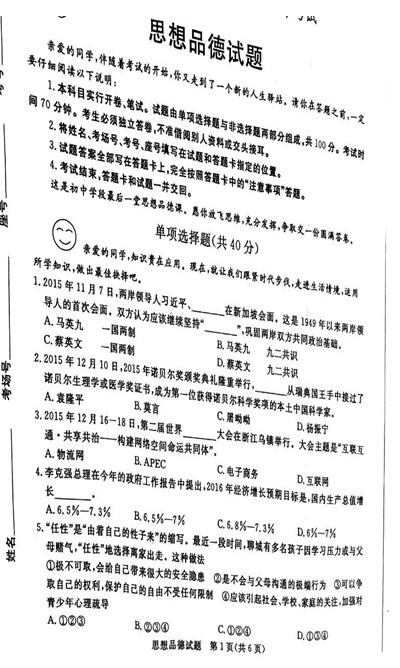 思想品德试题
亲爱的同学,伴随着考试的开始,你又走到了一个新的人生驿站。请你在答题之前,一定
要仔细阅读以下说明:
1.本科目实行开卷、笔试。试题由单项选择题与非选择题两部分组成,共100分。考试时
间70分钟。考生必须独立答卷,不准借阅别人资料或交头接耳。
2.将姓名、考场号、考号、座号填写在试题和答题卡指定的位置。
3.试题答案全部写在答题卡上,完全按照答题卡中的“注意事项”答题。
4.考试结束,答题卡和试题一并交回。
这是初中学段最后一堂思想品德课。愿你放飞思维,充分发挥,争取交一份圆满答卷。
单项选择题(共40分)
亲爱的同学,知识贵在应用。现在,就让我们跟紧时代步伐,走进生活情境,运用
所学知识,做出最佳抉择吧。
1.2015年11月7日,两岸领导人习近平、______在新加坡会面。这是1949年以来两岸领
导人的首次会面。双方认为应该继续坚持“______”,巩固两岸双方共同政治基础。
A.马英九 一国两制 B.马英九 九二共识
C.蔡英文 一国两制 D.蔡英文 九二共识
2.2015年12月10日,2015年诺贝尔奖颁奖典礼隆重举行,______从瑞典国王手中接过了
诺贝尔生理学或医学奖证书,成为第一位获得诺贝尔科学奖项的本土中国科学家。
A.袁隆平 B.莫言 C.屠呦呦 D.杨振宁
3.2015年12月16—18日,第二届世界______大会在浙江乌镇举行。大会主题是“互联互
通·共享共治——构建网络空间命运共同体”。
A.物流网 B.APEC C.电子商务 D.互联网
4.李克强总理在今年的政府工作报告中提出,2016年经济增长预期目标是,国内生产总值增
长______。
A.6.5%—7.3% B.6.5%—7% C.6.8%—7.3% D.6%—7%
5.“任性”是“由着自己的性子来”的缩写。最近一段时间,聊城有多名孩子因学习压力或与父
母赌气,“任性”地选择离家出走。这种做法
①极不可取,会给自己带来很大的安全隐患 ②是不会与父母沟通的极端行为 ③可以争
取自己的权利,保护自己的自由不受任何限制 ④应该引起社会、学校、家庭的关注,加强对
青少年心理疏导
A.①②③ B.②③④ C.①②④ D.①③④
思想品德试题 第1页(共6页)
座号
考场号
姓名